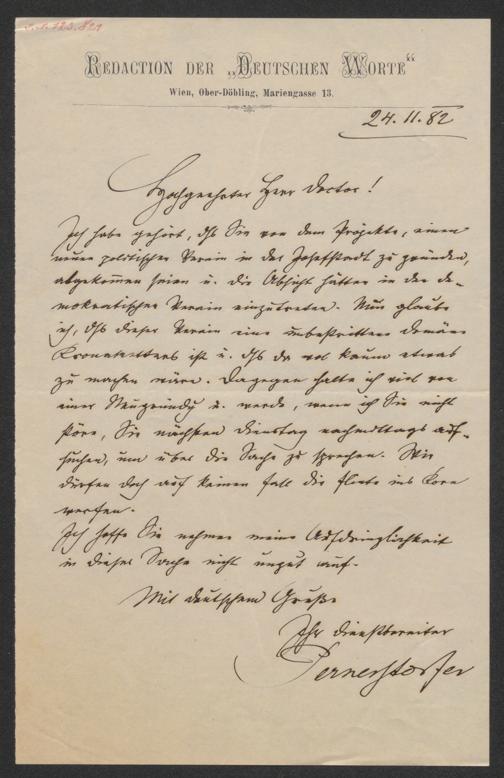 I.N. 123.821
REDACTION DER „DEUTSCHEN WORTE“
Wien, Ober-Döbling, Mariengasse 13.
24. 11. 82
Hochgeehrter Herr Doctor!
Ich habe gehört, dß Sie von dem Projekte, einen
neuen politischen Verein in der Josefstadt zu gründen,
abgekommen seien u. die Absicht hätten in den de-
mokratischen Verein einzutreten. Nun glaube
ich, dß dieser Verein eine unbestrittene Domäne
Kronawetters ist u. dß da wol kaum etwas
zu machen wäre. Dagegen halte ich viel von
einer Neugründg u. werde, wenn ich Sie nicht
störe, Sie nächsten Dienstag nachmittags auf-
suchen, um über die Sache zu sprechen. Wir
dürfen doch auf keinen Fall die Flinte ins Korn
werfen.
Ich hoffe Sie nehmen meine Aufdringlichkeit
in dieser Sache nicht ungut auf.
Mit deutschem Gruße
Ihr dienstbereiter
Pernerstorfer